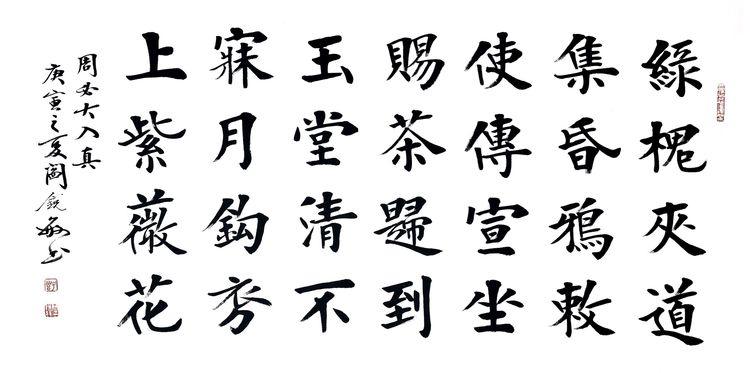 綠槐夾道
集昏鴉敕
使傳宣坐
賜茶歸到
玉堂清不
寐月鈎初
上紫薇花
周必大入真
庚寅之夏閻銳敏书